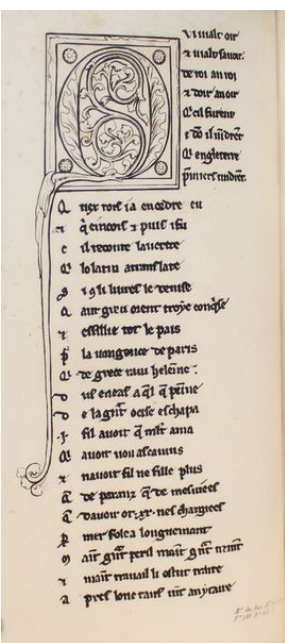 Q Vi vialt oir
& uialt sauoir.
De roi an roi
& doir an oir
Qi cil furent
& dō il uindrēt
Qi engleterre
p̄miers tindrēt.
Q uiex rois i a en ordre eu
& q̄ eincois & puis i fu
e il reconte la uerte
Qi lo latin a translate
S i 9 li liures le deuise
Q ant greu orent troye conq̄se
& essillie tot le pais
P̄ la uangance de paris
Qi de grece raui heleine:
D us eneas a q̄l q̄ peine
D e la grāt ocise eschapa
.I. fil auoit q̄ mlt ama
Qi auoit non ascanius
N auoit fil ne fille plus
Q̄ de paranz q̄ de mesniees
Q̄ dauoir ot .xx. nes chargiees
P mer folea longuemant
M aīt grāt peril maīt grāt tormt
& maīt trauail li estut traire
A pres lonc tans uint an ytaire